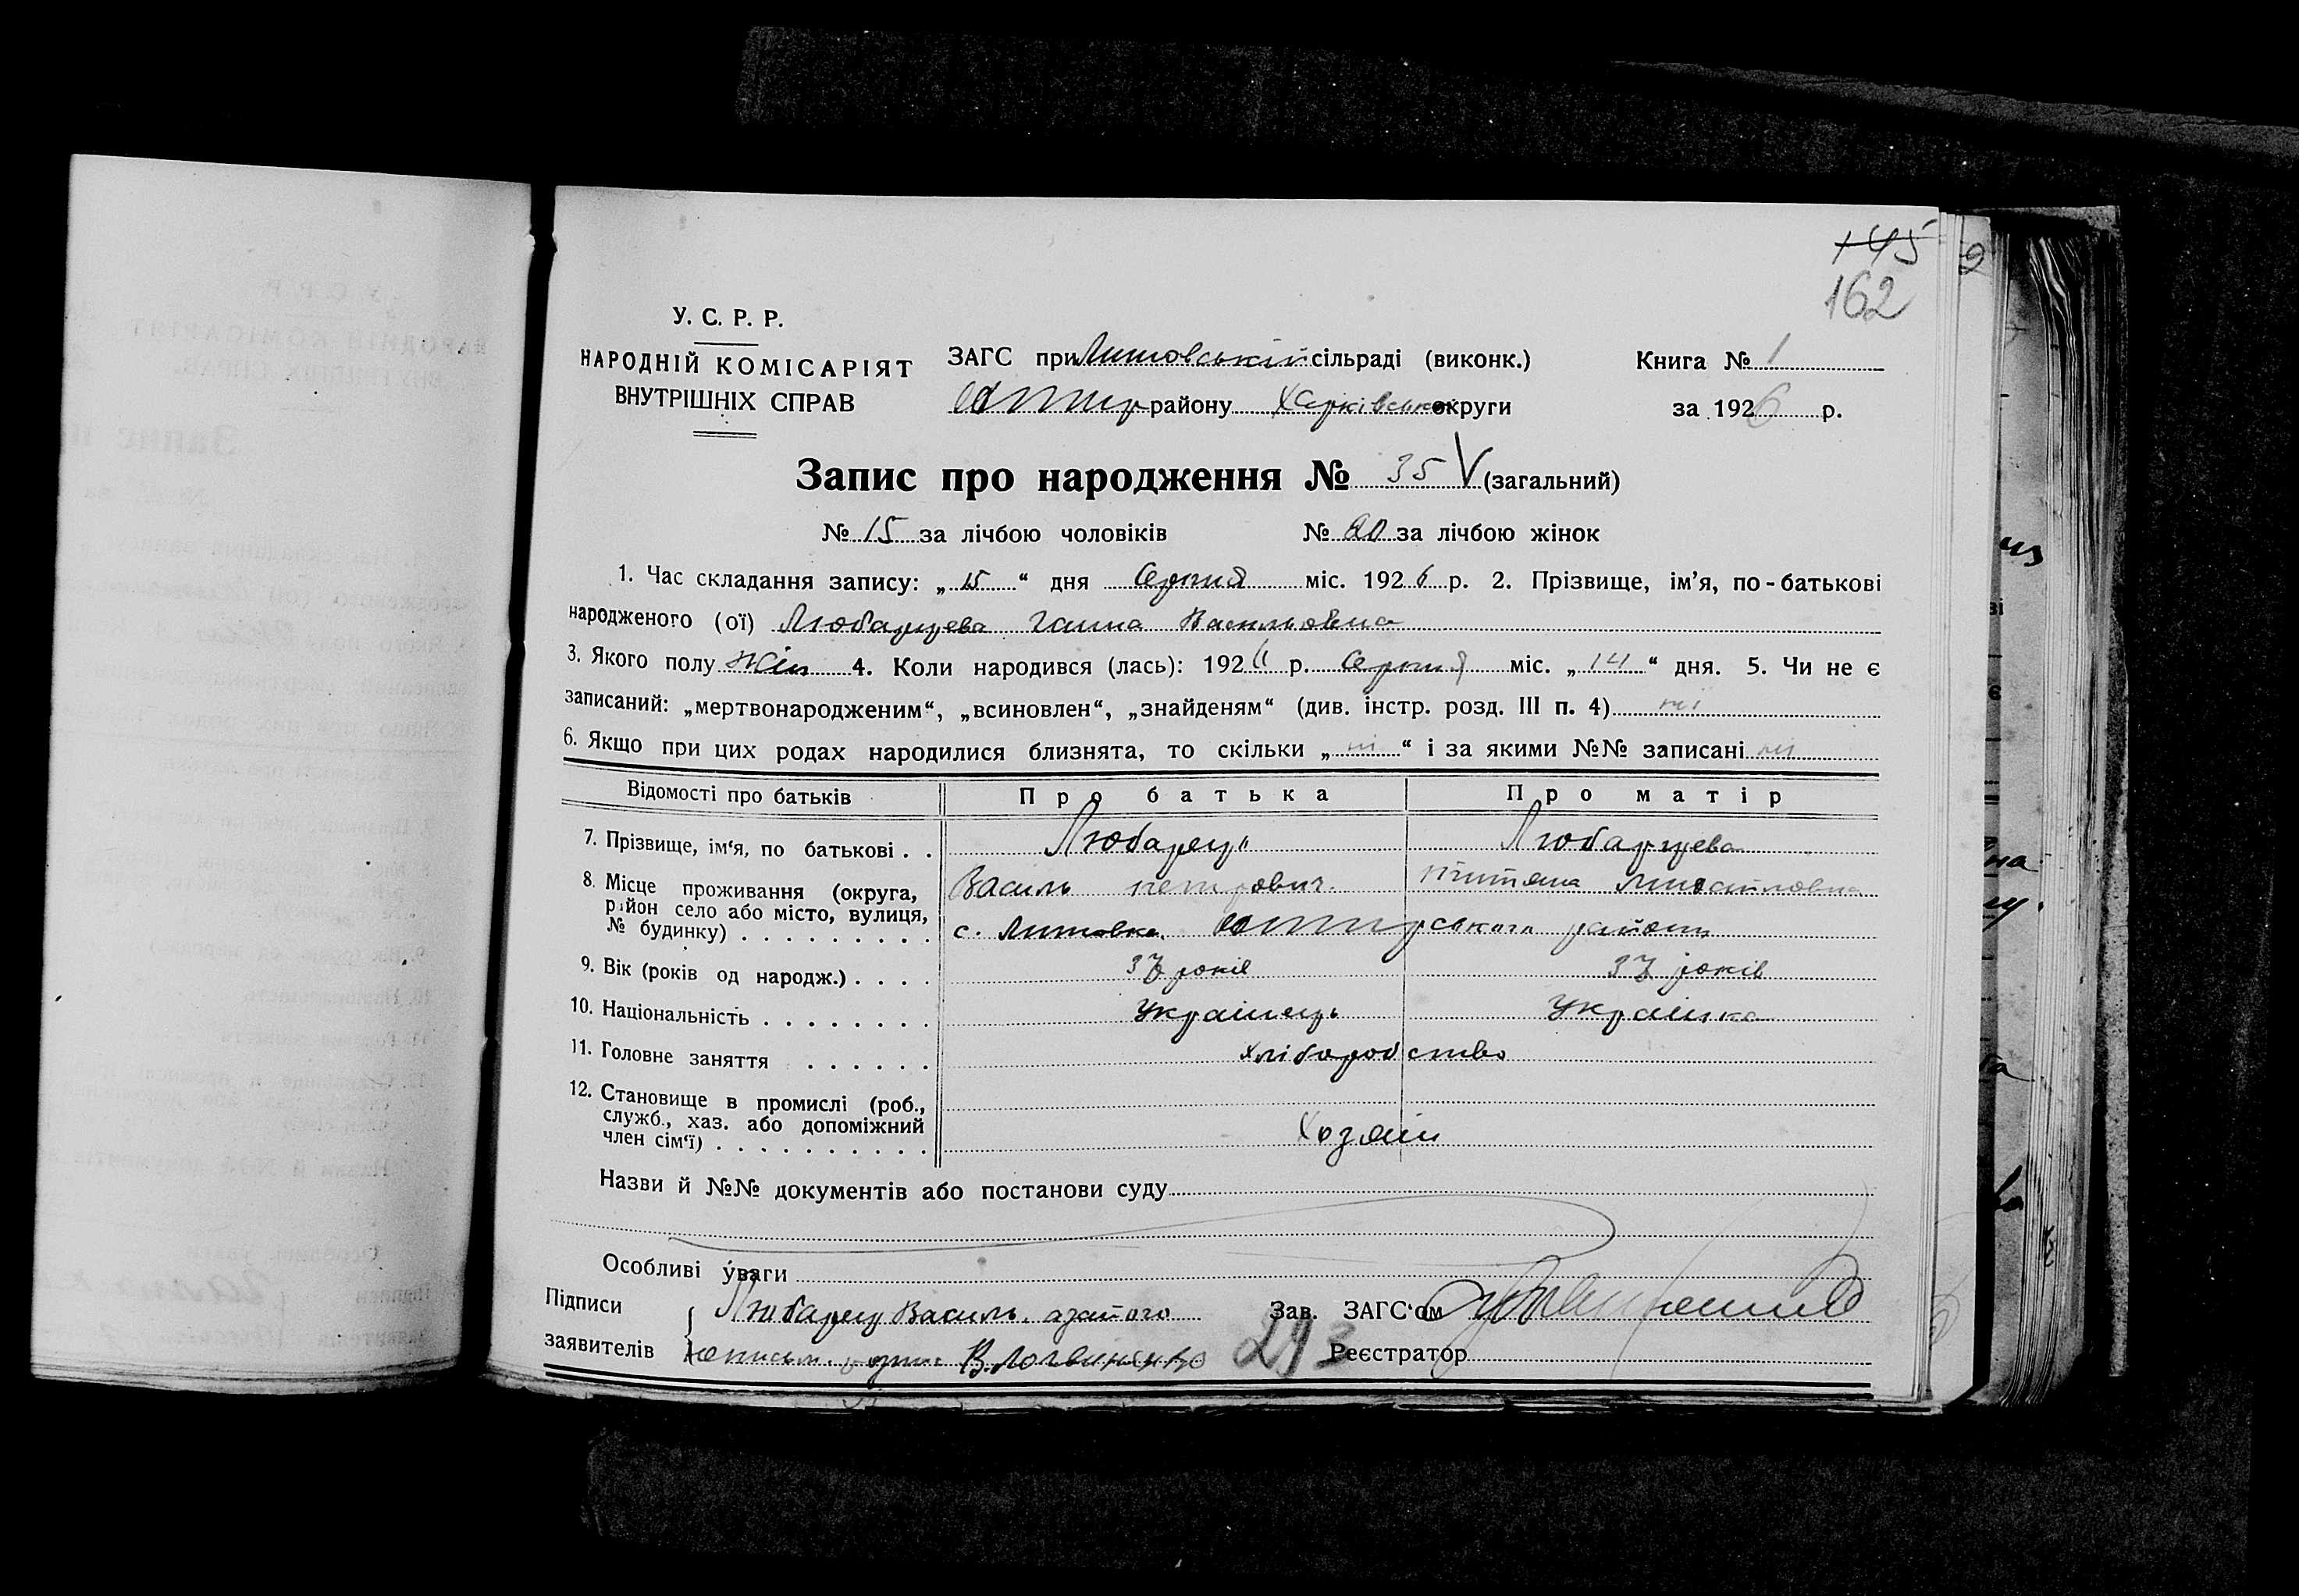 145
162
У. С. Р. Р.
НАРОДНІЙ КОМІСАРІЯТ
ВНУТРІШНІХ СПРАВ
ЗАГС при Литовській сільраді (виконк.)
району Харківської округи
Книга № 1
за 1926 р.
Запис про народження № 35 V (загальний)
№ 15 за лічбою чоловіків № 20 за лічбою жінок
1. Час складання запису: „15“ дня Серпня міс. 1926 р. 2. Прізвище, ім’я, по-батькові
народженого (ої) Любарцева Ганна Васильовна
3. Якого полу Жін 4. Коли народився (лась): 1926 р. Серпня міс. „14“ дня. 5. Чи не є
записаний: „мертвонародженим“, „всиновлен“, „знайденям“ (див. інстр. розд. III п. 4) ні
6. Якщо при цих родах народилися близнята, то скільки „ні“ і за якими №№ записані ні
Відомості про батьків Про батька Про матір
7. Прізвище, ім‘я, по батькові . . Любарець Любарцева
Василь петрович. Михайловна
8. Місце проживання (округа, район село або місто, вулиця, № будинку) . . . . . . . . . с. Литовка. району
9. Вік (років од народж.) . . . . 37 років 37 років
10. Національність . . . . . . . . Українець Українка
11. Головне заняття . . . . . . хліборобство
12. Становище в промислі (роб.,
служб., хаз. або допоміжний
член сім‘ї) . . . . . . . . . . Хозяїн
Назви й №№ документів або постанови суду
Особливі уваги
Підписи
заявителів
Любарец Василь. азатого
В. Логвиненко
293
Зав. ЗАГС‘ом
Реєстратор